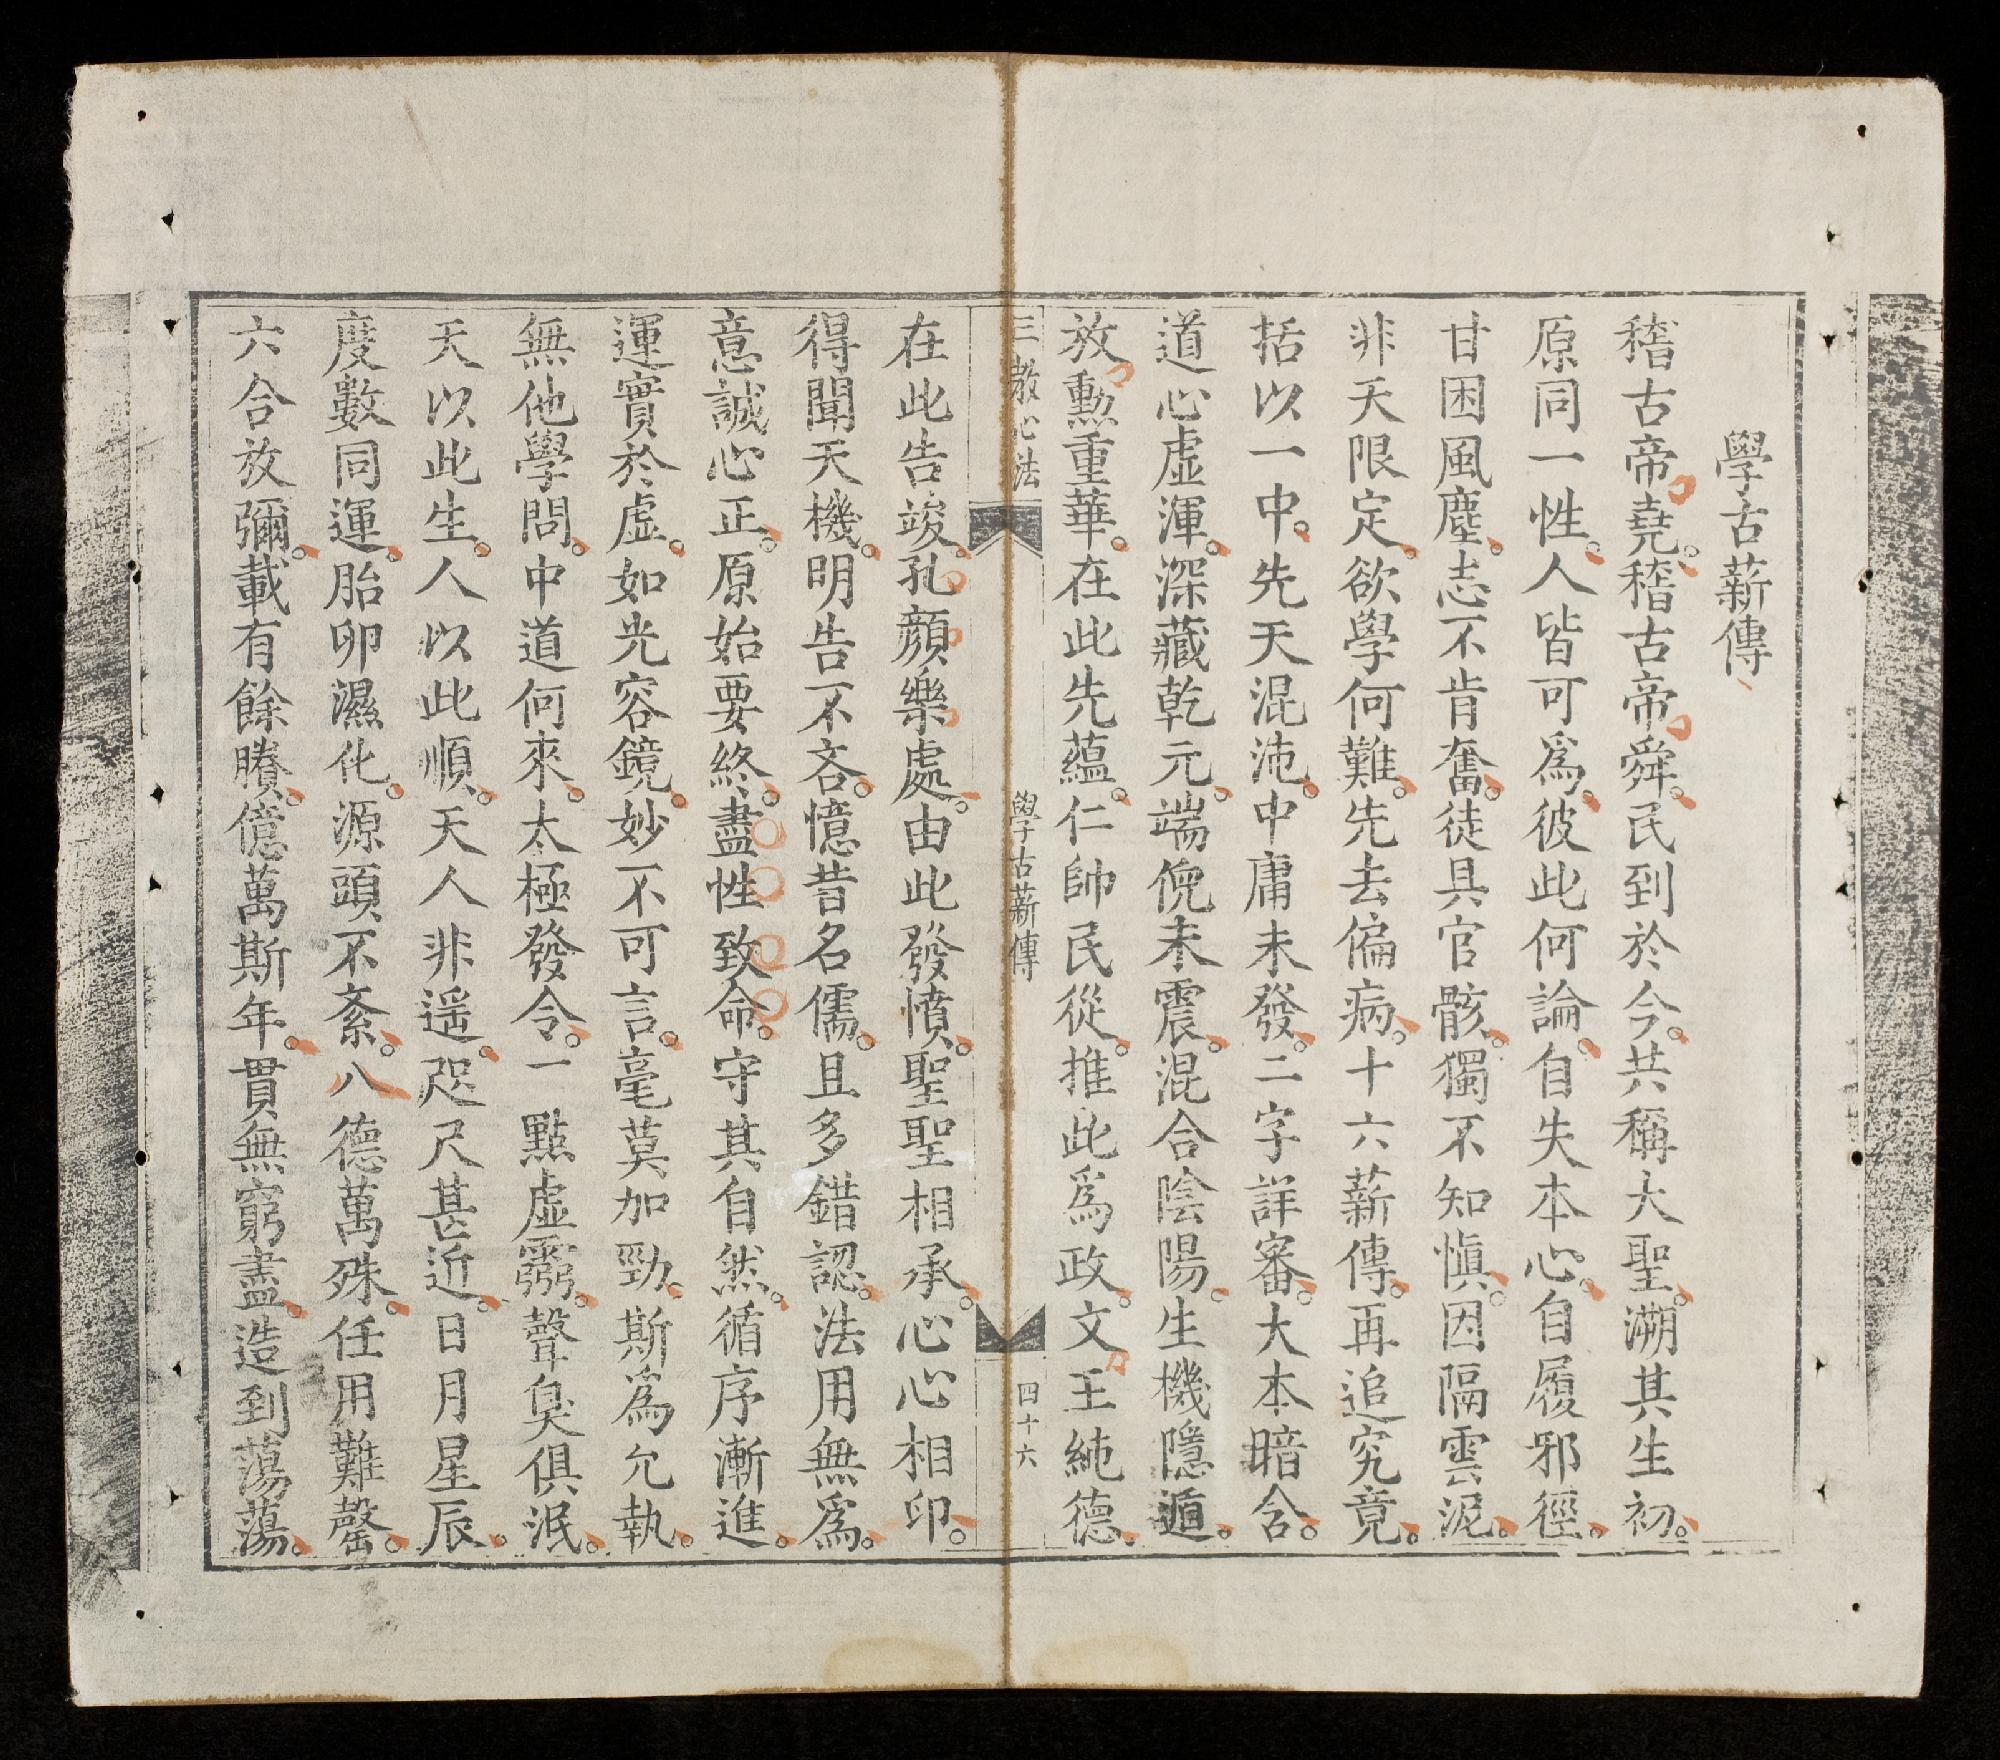 學古薪傳
稽古帝堯。稽古帝舜。民到於今。共稱大聖。溯其生初。
原同一性。人皆可為。彼此何論。自失本心。自履邪徑。
甘困風塵。志不肯奮。徒具官骸。獨不知愼。因隔雲泥。
非天限定。欲學何難。先去偏病。十六薪傳。再追究竟。
括以一中。先天混沌。中庸未發。二字詳審。大本暗含。
道心虛渾。深藏乾元。端倪未震。混合陰陽。生機隱遁。
放勳重華。在此先蘊。仁帥民從。推此為政。文王純德。
三教心法
學古薪傳
四十六
在此告竣。孔顏樂處。由此發憤。聖聖相承。心心相印。
得聞天機。明告不吝。憶昔名儒。且多錯認。法用無為。
意誠心正。原始要終。盡性致命。守其自然。循序漸進。
運實於虛。如光容鏡。妙不可言。毫莫加勁。斯為允執。
無他學問。中道何來。太極發令。一點虛靈。聲臭俱泯。
天以此生。人以此順。天人非遥。咫尺甚近。日月星辰。
度數同運。胎卵濕化。源頭不紊。八德萬殊。任用難罄。
六合放彌。載有餘賸。億萬斯年。貫無窮盡。造到蕩蕩。